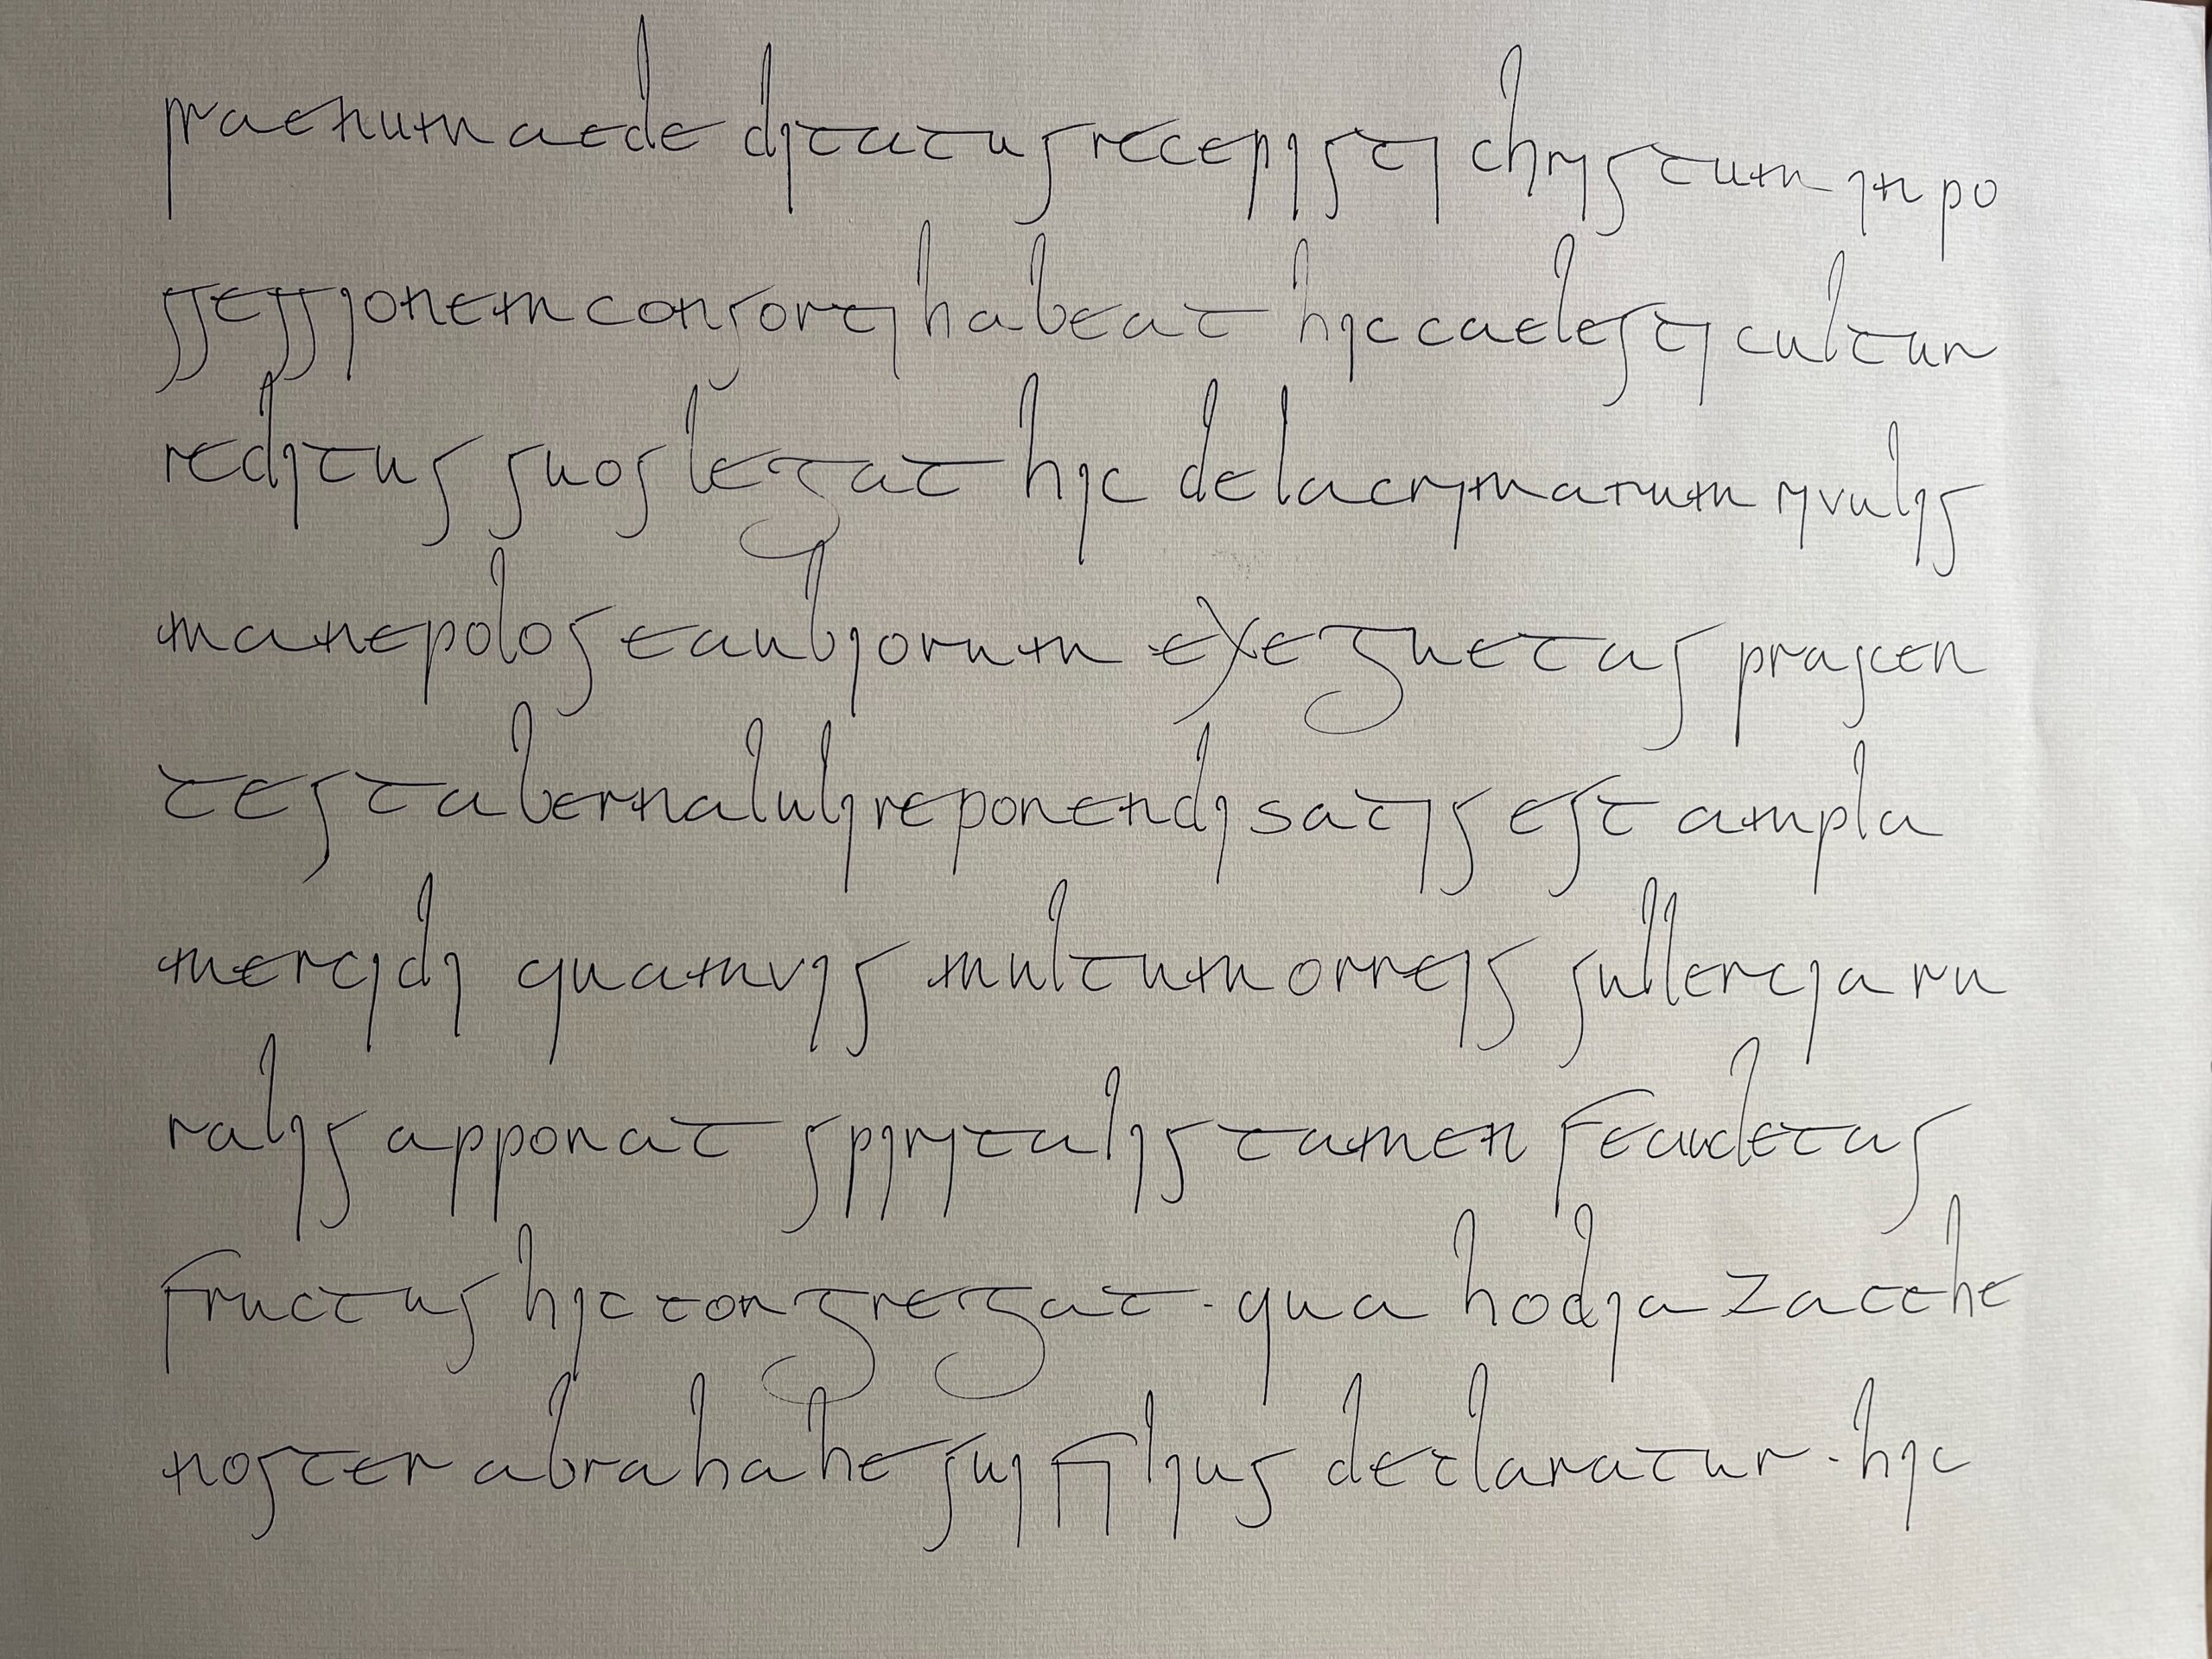 praenumaede ditatus recepisti christum in po
ssessionem consorti habeat hic caelesti cultur
reditus suos legat hic de lacrimarum rivulis
manepolos eaubiorum exeguetas prascen
tes tabernaluli reponendi satis est ampla
mercidi quamvis multum orreis sullercia ru
ralis apponat spiritalis tamen feaudetas
fructus hic congregat · qua hodia zacche
noster abrahahe sui filius declaratur · hic